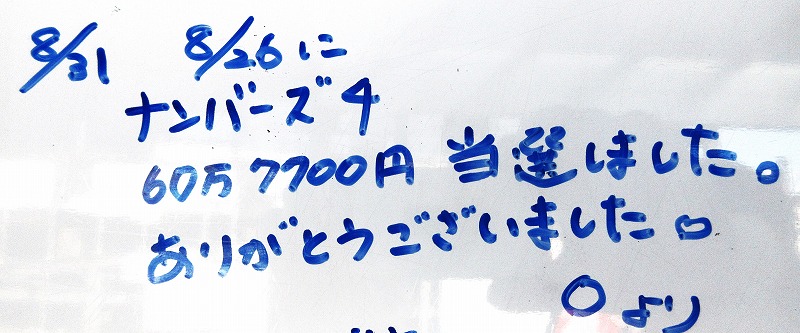 8/31 8/26に
ナンバーズ4
60万7700円 当選しました。
ありがとうございました。
Oより